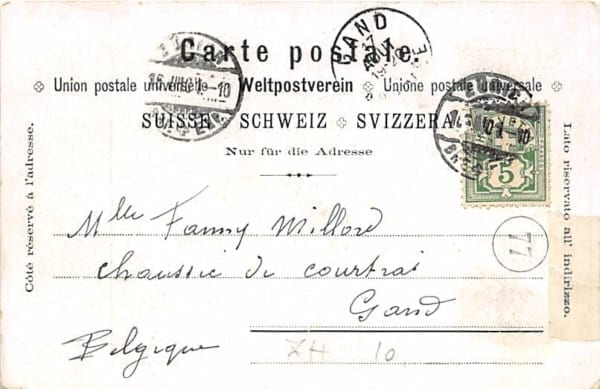 Carte postale.
Union postale universelle Weltpostverein Unione postale universale
SUISSE SCHWEIZ SVIZZERA
Nur für die Adresse
Côté réservé à l'adresse.
Lato riservato all' indirizzo.
GAND
5
77
Mlle Fanny Millord
chaussie de courtrai
Gand
Belgique
ZH 10